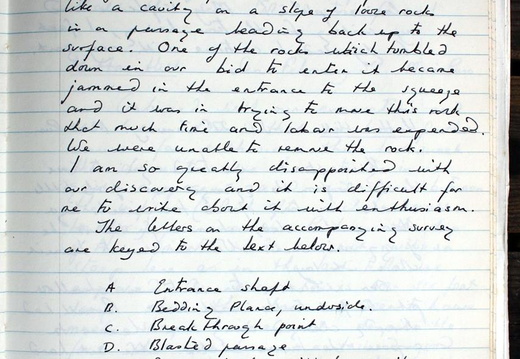 like a cavity on a slope of loose rocks
in a passage heading back up to the
surface. One of the rocks which tumbled
down in our bid to enter it became
jammed in the entrance to the squeeze
and it was in trying to move this rock
that much time and labour was expended.
We were unable to remove the rock.
I am so greatly disappointed with
our discovery and it is difficult for
me to write about it with enthusiasm.
The letters on the accompanying survey
are keyed to the text below.
A Entrance shaft
B. Bedding Plane, underside.
C. Break Through point
D. Blasted passage